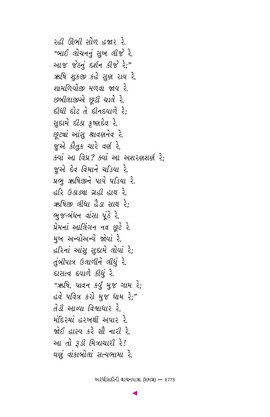 રહી ઊભી સોળ હજાર રે.
"બાઈ લોચનનું સુખ લીજે રે,
આજ જેઠનું દર્શન કીજે રે;"
ઋષિ શુકજી કહે સુણ રાય રે.
શામળિયોજી મળવા જાય રે.
છબીલાજીએ છૂટી ચાલે રે.
દીધી દોટ તે દીનદયાળે રે;
સુદામે દીઠા કૃષ્ણદેવ રે.
છૂટ્યાં આંસુ શ્રાવણનેવ રે.
જુએ કૌતુક ચારે વર્ણ રે.
ક્યાં આ વિપ્ર? ક્યાં આ અશરણશર્ણ રે;
જુએ દેવ વિમાને ચડિયા રે.
પ્રભુ ઋષિજીને પાયે પડિયા રે.
હરિ ઉઠાડ્યા ગ્રહી હાથ રે.
ઋષિજી લીધા હૈડા સાથ રે;
ભુજ-બંધન વાંસા પૂંઠે રે.
પ્રેમનાં આલિંગન નવ છૂટે રે.
મુખ અન્યોઅન્યે જોયાં રે.
હરિનાં આંસુ સુદામે લોયાં રે;
તુંબીપાત્ર ઉલાળીને લીધું રે.
દાસત્વ દયાળે કીધું રે.
"ઋષિ, પાવન કર્યું મુજ ગામ રે;
હવે પવિત્ર કરો મુજ ધામ રે;"
તેડી આવ્યા વિશ્વાધાર રે.
મંદિરમાં હરખથી અપાર રે.
જોઈ હાસ્ય કરે સૌ નારી રે.
આ તો રૂડી મિત્રાચારી રે!
ઘણું વાંકાબોલાં સત્યભામા રે.